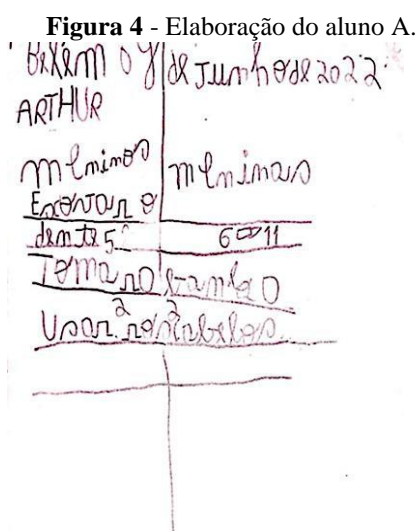 Figura 4 - Elaboração do aluno A.
Belém 08 de Junho de 2022
ARTHUR
meninos meninas
Escovar o
dente 5 6 = 11
Tomar banho
2 2
Usar cabelos